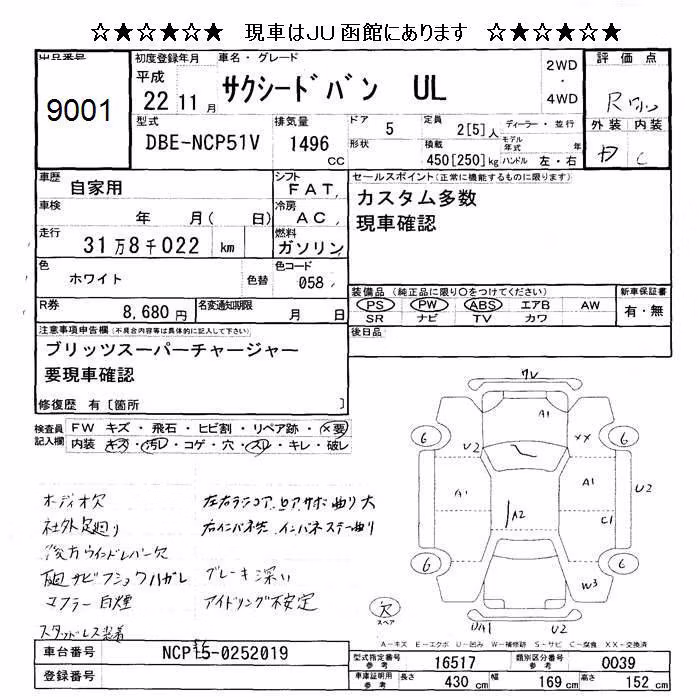 ☆★☆★☆★ 現車はJU函館にあります ☆★☆★☆★
出品番号
9001
初度登録年月
平成
22 11 月
車名・グレード
サクシードバン UL
2WD
・
4WD
評価点
R
外装 内装
C
型式
DBE-NCP51V
排気量
1496
CC
ドア
5
形状
定員
2[5]人
積載
450[250]kg
ディーラー・並行
モデル年式 年
ハンドル 左・右
車歴
自家用
シフト
FAT
車検
年 月( 日)
冷房
AC
走行
31万8千022 km
燃料
ガソリン
色
ホワイト
色替
色コード
058
R券
8,680円
名変通知期限
月 日
セールスポイント(正常に機能するものに限ります)
カスタム多数
現車確認
装備品(純正品に限り○をつけてください)
PS PW ABS エアB AW
SR ナビ TV カワ
新車保証書
有・無
後日品
注意事項申告欄(不具合内容等は具体的に記入して下さい)
ブリッツスーパーチャージャー
要現車確認
修復歴 有[箇所 ]
検査員
記入欄
FW キズ・飛石・ヒビ割・リペア跡・×要
内装 キズ・汚レ・コゲ・穴・スリ・キレ・破レ
オーディオ欠
社外足廻り
後方ウインドレバー欠
下廻サビフショクハガレ
マフラー白煙
スタッドレス装着
左右ラジコア、ロアサポ曲り大
右インパネ先、インパネステー曲り
ブレーキ深い
アイドリング不安定
ワレ
A1
6
U2
XX
6
A1
A2
A1
U2
C1
6
6
W3
欠
スペア
UA1
U2
A－キズ E－エクボ U－凹み W－補修跡 S－サビ C－腐食 XX－交換済
車台番号
NCP51-0252019
登録番号
型式指定番号
参考
16517
類別区分番号
参考
0039
車庫証明用
参考
長さ
430 cm
幅
169 cm
高さ
152 cm